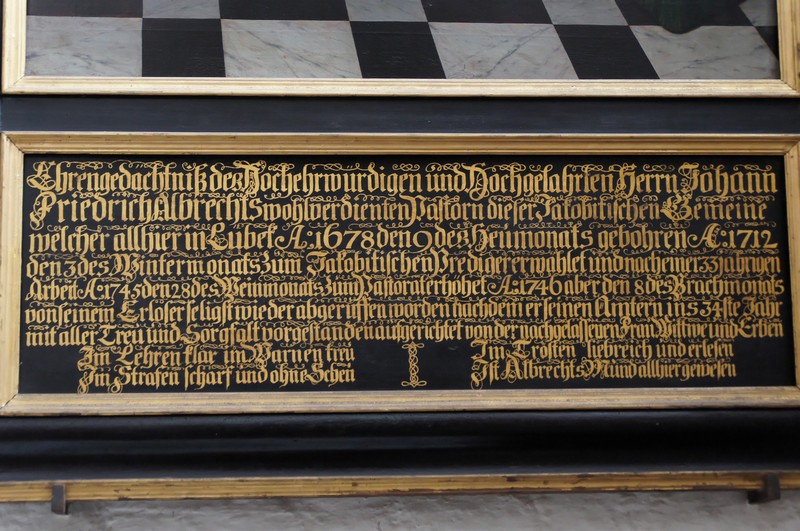 Ehrengedächtniß des Hochehrwürdigen und Hochgelahrten Herrn Johann
Friedrich Albrechts wohlverdienten Pastorn dieser Jakobitischen Gemeine
welcher allhier in Lübek A: 1678 den 9 des Heumonats gebohren A: 1712
den 3 des Wintermonats zum Jakobitischen Prediger erwählet und nach einer 33 jährigen
Arbeit A: 1745 den 28 des Weinmonats zum Pastorat erhöhet A: 1746 aber den 8 des Brachmonats
von seinem Erlöser seligst wieder abgeruffen worden nachdem er seinen Ämtern ins 34ste Jahr
mit aller Treu und Sorgfalt vorgestanden aufgerichtet von der nachgelassenen Frau Wittwe und Erben
Im Lehren klar im Warnen treu
Im Strafen scharf und ohne Scheu
Im Trösten liebreich und erlesen
Ist Albrechts Mund allhier gewesen